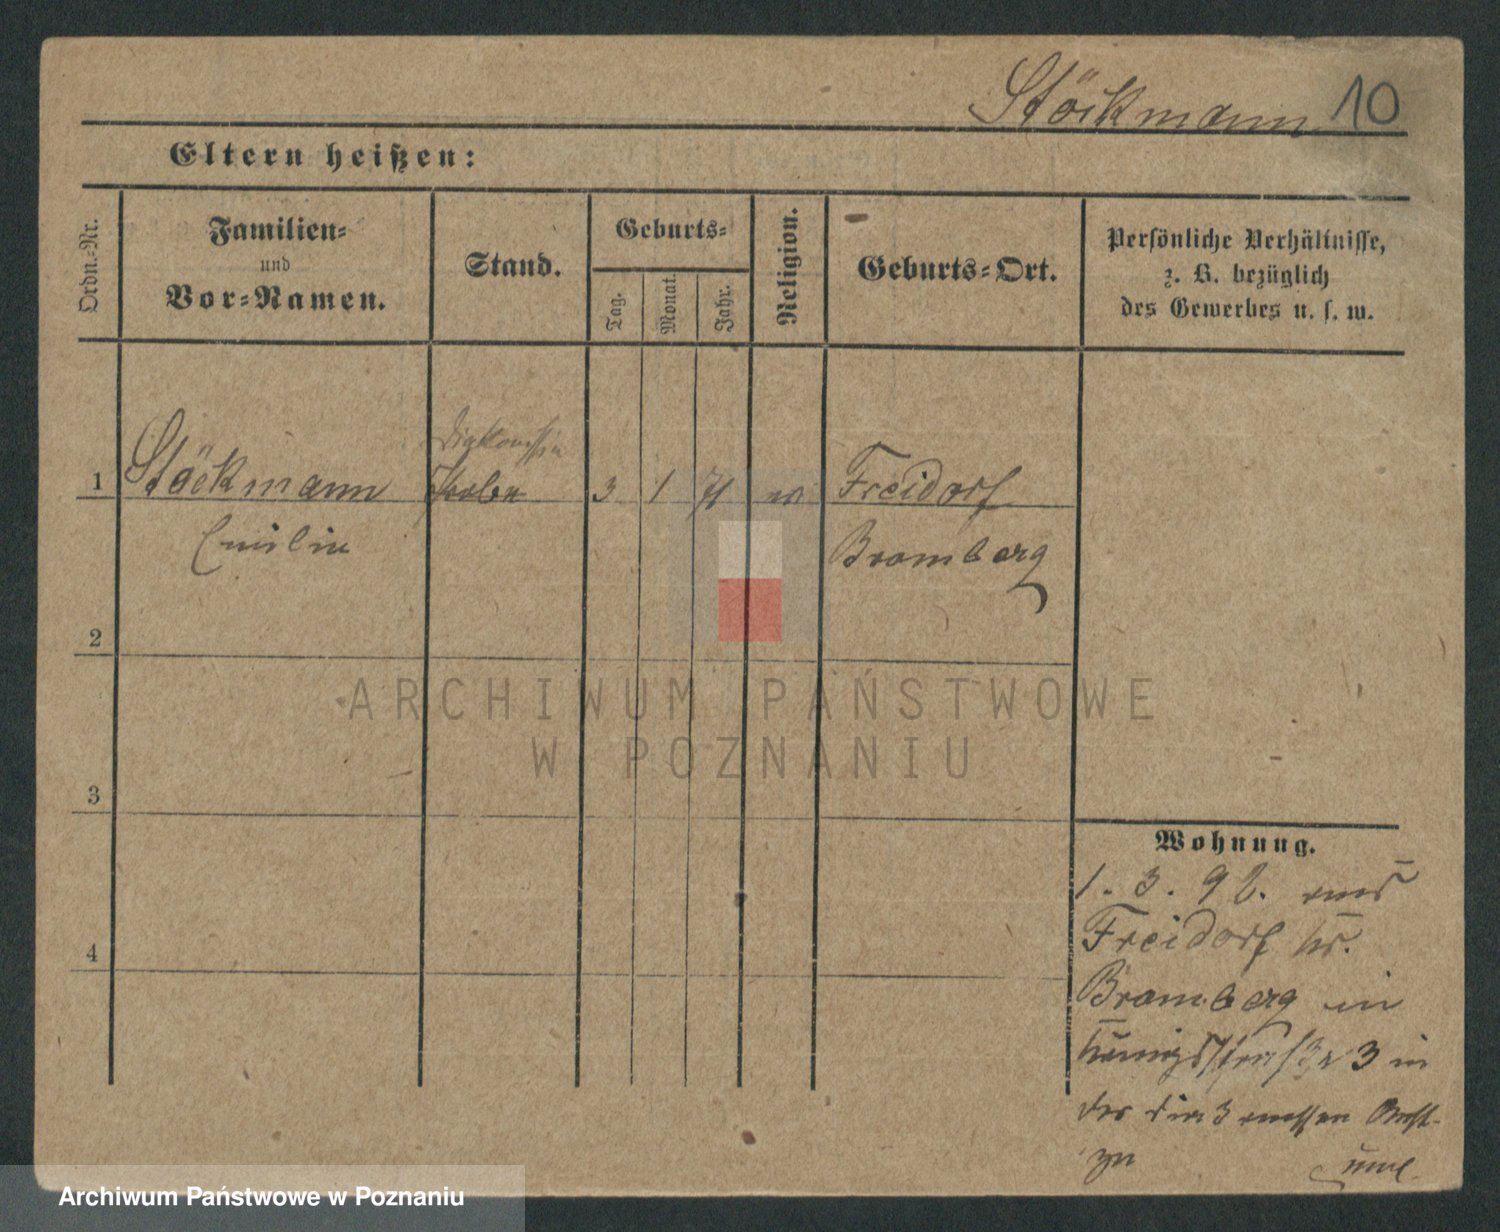 Stöckmann 10
Eltern heißen:
Ordn.-Nr.
Familien-
und
Vor-Namen.
Stand.
Geburts-
Tag.
Monat.
Jahr.
Religion.
Geburts-Ort.
Persönliche Verhältnisse,
z. B. bezüglich
des Gewerbes u. s. w.
Diakonissin
1 Stöckmann 3 1 71 Freidorf
Emilie
Bromberg
2
3
4
Wohnung.
1. 3. 92. aus
Freidorf Kr.
Bromberg in
Königsstraße 3 in
der
ARCHIWUM PAŃSTWOWE
W POZNANIU
Archiwum Państwowe w Poznaniu